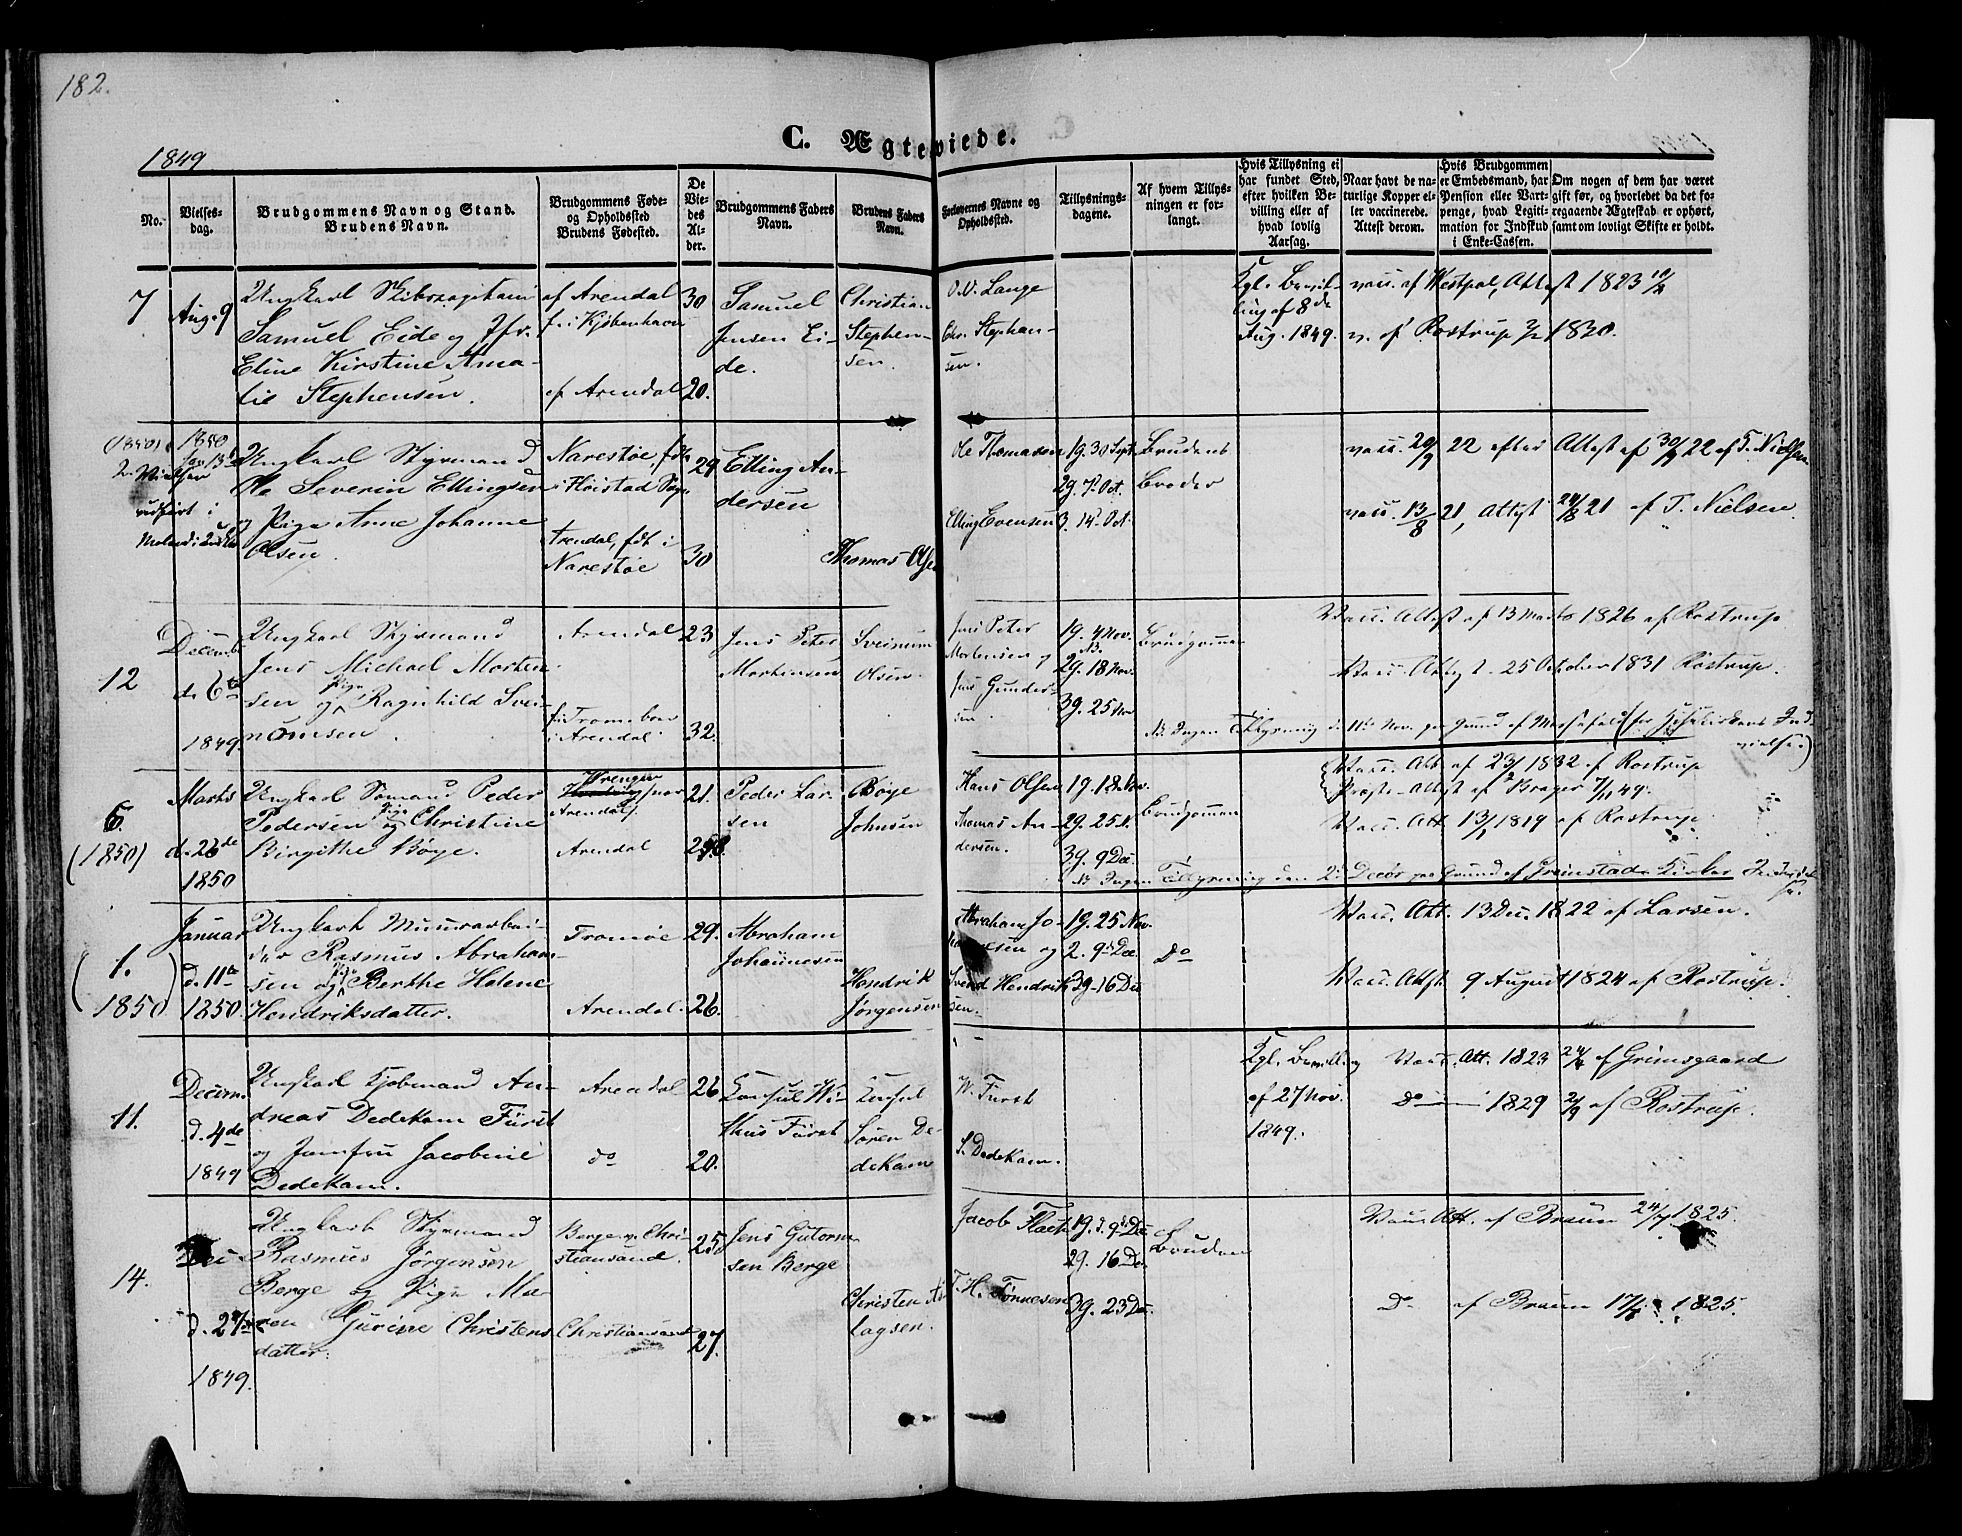 182.
C. Ægteviede.
1849
No.
Vielses-
dag.
Brudgommens Navn og Stand.
Brudens Navn.
Brudgommens Føde-
og Opholdssted
Brudens Fødested.
De
Vie-
des
Al-
der.
Brudgommens Faders
Navn.
Brudens Faders
Navn.
Forlovernes Navne og
Opholdssted.
Tillysnings-
dagene.
Af hvem Tillys-
ningen er for-
langt.
Hvis Tillysning ei
har fundet Sted,
efter hvilken Be-
villing eller af
hvad lovlig
Aarsag.
Naar havt de na-
turlige Kopper el-
ler vaccinerede.
Attest derom.
Hvis Brudgommen
er Embedsmand, har
Pension eller Vart-
penge, hvad Legiti-
mation for Indskud
i Enke-Cassen.
Om nogen af dem har været
gift før, og hvorledet da det fo-
regaaende Ægteskab er ophørt,
samt om lovligt Skifte er holdt.
7
Aug. 9
Ungkarl Skibscapitain
Samuel Eide og Jfr.
Eline Kirstine Ama-
lie Stephensen.
af Arendal
f. i Kjöbenhavn
af Arendal
30
20.
Samuel
Jensen Ei-
de.
Christian
Stephen-
sen.
O. V. Lange
Chr. Stephan-
sen.
Kgl. Bevil-
ling af 8de
Aug. 1849.
vacc. af Westpal, Attest 1823
v. af Rostrup 1830.
(1850)
2.
1850
Jan 13
Vielsen
udført i
Ungkarl Styrmand
Ole Severin Ellingsen
og Pige Anne Johanne
Olsen.
Narestøe, fdt
i Høistad Sogn
Arendal, fdt i
Narestöe
29
30
Elling An-
dersen
Thomas Olsen
Ole Thomassen
Elling Evensen
19. 30 Sept.
29. 7 Oct.
3. 14 Oct.
Brudens
Broder
vacc. 20/9 22 efter Attest af 30/9 22 af T. Nielsen
vacc. 13/8 21, Attest 24/8 21 af T. Nielsen.
12
Decemb.
d. 6te
1849.
Ungkarl Styrmand
Jens Michael Morten-
sen og Pige Ragnhild Svei-
numsen.
Arendal
f. i Tromöe
i Arendal
23
32.
Jens Peter
Mortensen
Sveinum
Olsen.
Jens Peter
Mortensen og
Jens Gunder-
sen.
19. 4 Nov.
29. 18 Nov.
39. 25 Nov
Brudgommen
Vacc. Attest af 13 Marts 1826 af Rostrup
Vacc. Attest 25 October 1831 Rostrup.
NB. Ingen Tillysning d. 11te Nov. paa Grund af Messefald
6.
(1850)
Marts
d. 26de
1850
Ungkarl Sömand Peder
Pedersen og Pige Christine
Birgithe Børge.
Arendal.
Arendal
21.
Peder Lar-
sen
Børge
Johnsen
Hans Olsen
Thomas An-
dersen.
19. 18 Nov.
29. 25 N.
39. 9 Dec.
Brudgommen
Vacc. Att. af 23/1 1832 af Rostrup
Præste-Attest af Brager 7/11 49.
Vacc. Att. 13/1 1819 af Rostrup.
NB Ingen Tillysning den 2d Decbr paa Grund af Grimstads Kirkes
(1.
1850)
Januar
d. 11te
1850.
Ungkarl Muurarbei-
der Rasmus Abraham-
sen og Pige Berthe Helene
Hendriksdatter.
Tromöe
Arendal.
29.
26.
Abraham
Johannesen
Hendrik
Jørgensen
Abraham Jo-
hannesen og
Svend Hendrik-
sen.
19. 25 Nov.
2. 9de Dec.
39. 16 Dec
Do
Vacc. Att. 13 Dec. 1822 af Larsen.
Vacc. Attst. 9 August 1824 af Rostrup.
11.
Decem.
d. 4de
1849
Ungkarl Kjøbmand An-
dreas Dedekam Fürst
og Jomfru Jacobine
Dedekam.
Arendal
do
26
20.
Consul Wi-
thus Fürst
Consul
Søren De-
dekam
W. Fürst
S. Dedekam.
Kgl. Bevilling
af 27 Nov.
1849.
Vacc. Att. 1823 24/4 af Grimsgaard
Do 1829 2/9 af Rostrup.
14.
Dec
d. 27
1849.
Ungkarl Styrmand
Rasmus Jørgensen
Berge og Pige Ma-
ren Gurine Christens
datter.
Berge v. Chri-
stiansand.
Christiansand
25
27.
Jens Gutorm
sen Berge
Christen As-
lagsen.
Jacob Flaet
T. H. Tönnesen
19. d. 9de Dec
29. 16 De.
39. 23 Dec.
Bruden
Vacc. Att. af Bruun 24/7 1825.
Do af Bruun 17/7 1825.